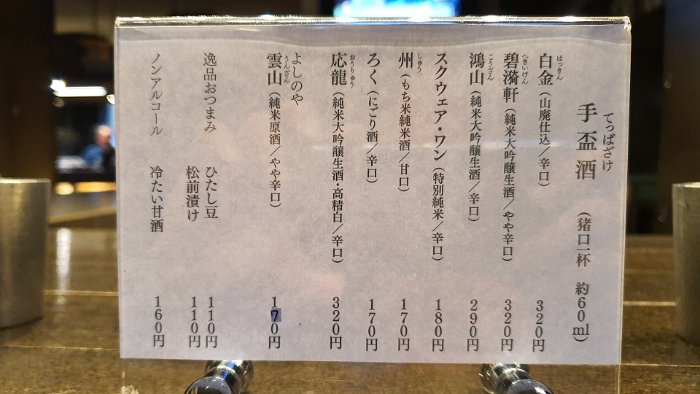 手盃酒 てっぱざけ (猪口一杯 約60ml)
白金 はっきん (山廃仕込/辛口) 320円
碧漪軒 へきいけん (純米大吟醸生酒/やや辛口) 320円
鴻山 こうざん (純米大吟醸生酒/辛口) 290円
スクウェア・ワン (特別純米/辛口) 180円
州 しゅう (もち米純米酒/甘口) 170円
ろく (にごり酒/辛口) 170円
応龍 おうりゅう (純米大吟醸生酒・高精白/辛口) 320円
よしのや
雲山 うんざん (純米原酒/やや辛口) 170円
逸品おつまみ ひたし豆 110円
松前漬け 110円
ノンアルコール 冷たい甘酒 160円